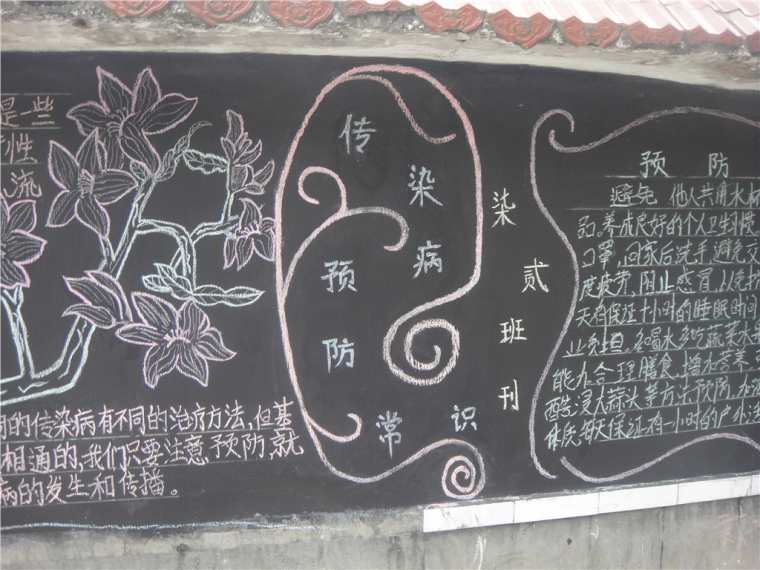 是一些
性
流
同的传染病有不同的治疗方法,但基
相通的,我们只要注意预防,就
病的发生和传播。
传染病
预防
常识
染贰班刊
预防
避免 他人共用水杯
品,养成良好的个人卫生习惯
口罩,回家后洗手,避免交
度疲劳,防止感冒,以免抗
天将保证十小时的睡眠时间
业负担,多喝水多吃蔬菜水
能力合理膳食,增加营养,
醋,浸大蒜头等方法预防,加
体质每天保证有一小时的户外活